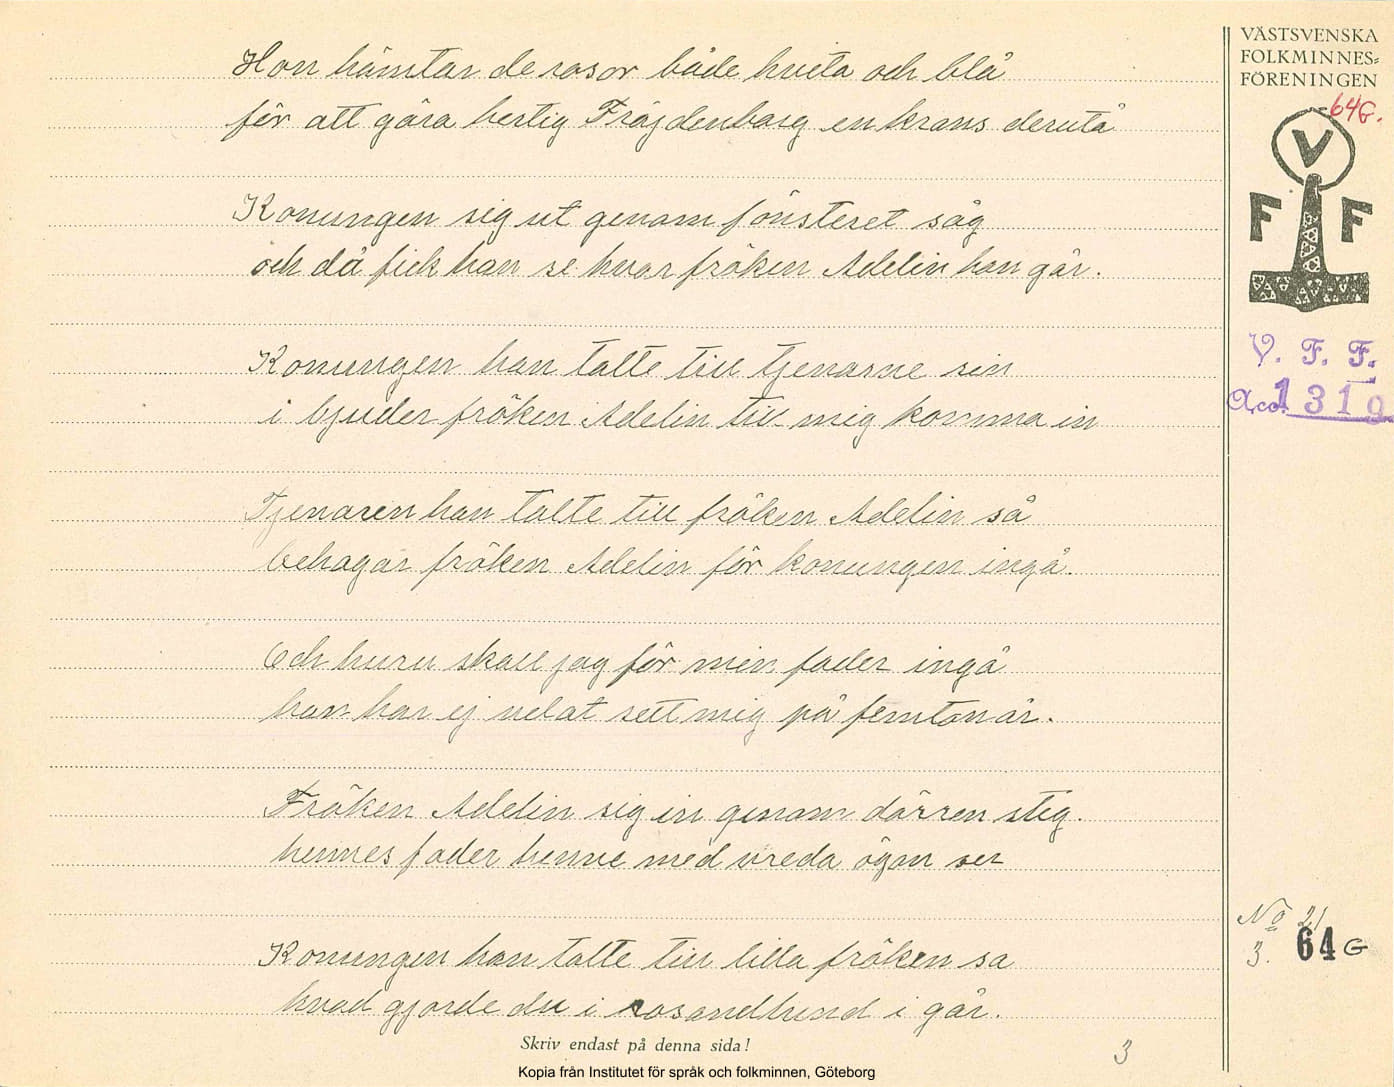 VÄSTSVENSKA
FOLKMINNES=
FÖRENINGEN
64G.
V
F F
V. F. F.
Acc. 1319
Hon hämtar de rosor både hvita och blå
för att göra hertig Fröjdenborg en krans derutå
Konungen sig ut genom fönsteret såg
och då fick han se hvar fröken Adelin hon går.
Konungen han talte till tjenarne sin
i bjuder fröken Adelin till mig komma in
Tjenaren han talte till fröken Adelin så
behagar fröken Adelin för konungen ingå.
Och huru skall jag för min fader ingå
han har ej velat sett mig på femton år.
Fröken Adelin sig in genom dörren steg.
hennes fader henne med vreda ögon ser
Konungen han talte till lilla fröken sa
hvad gjorde du i rosendlund i går.
No 21
3. 64 G
Skriv endast på denna sida!
3
Kopia från Institutet för språk och folkminnen, Göteborg